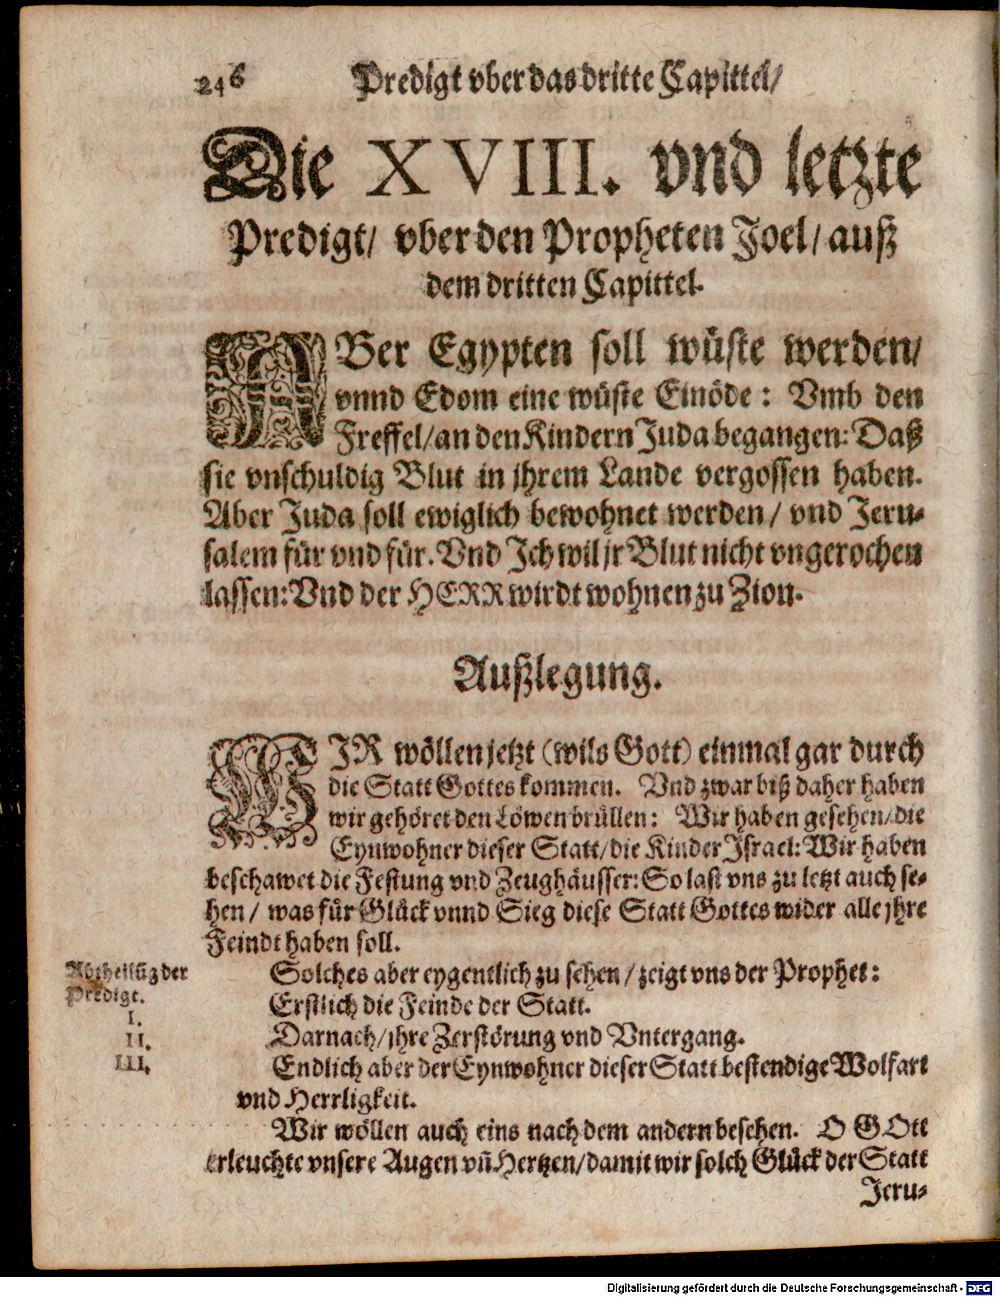 246 Predigt vber das dritte Capittel/
Die XVIII. vnd letzte
Predigt/ vber den Propheten Joel/ auß
dem dritten Capittel.
ABer Egypten soll wüste werden/
vnnd Edom eine wüste Einöde: Vmb den
Freffel/ an den Kindern Juda begangen: Daß
sie vnschuldig Blut in jhrem Lande vergossen haben.
Aber Juda soll ewiglich bewohnet werden/ vnd Jeru-
salem für vnd für. Vnd Ich wil jr Blut nicht vngerochen
lassen: Vnd der HERR wirdt wohnen zu Zion.
Außlegung.
WIR wöllen jetzt (wils Gott) einmal gar durch
die Statt Gottes kommen. Vnd zwar biß daher haben
wir gehöret den Löwen brüllen: Wir haben gesehen/ die
Eynwohner dieser Statt/ die Kinder Israel: Wir haben
beschawet die Festung vnd Zeughäusser: So last vns zu letzt auch se-
hen/ was für Glück vnnd Sieg diese Statt Gottes wider alle jhre
Feindt haben soll.
Abtheilūg der
Predigt.
I.
II.
III.
Solches aber eygentlich zu sehen/ zeigt vns der Prophet:
Erstlich die Feinde der Statt.
Darnach/ jhre Zerstörung vnd Vntergang.
Endlich aber der Eynwohner dieser Statt bestendige Wolfart
vnd Herrligkeit.
Wir wöllen auch eins nach dem andern besehen. O GOtt
erleuchte vnsere Augen vñ Hertzen/ damit wir solch Glück der Statt
Jeru-
Digitalisierung gefördert durch die Deutsche Forschungsgemeinschaft - DFG